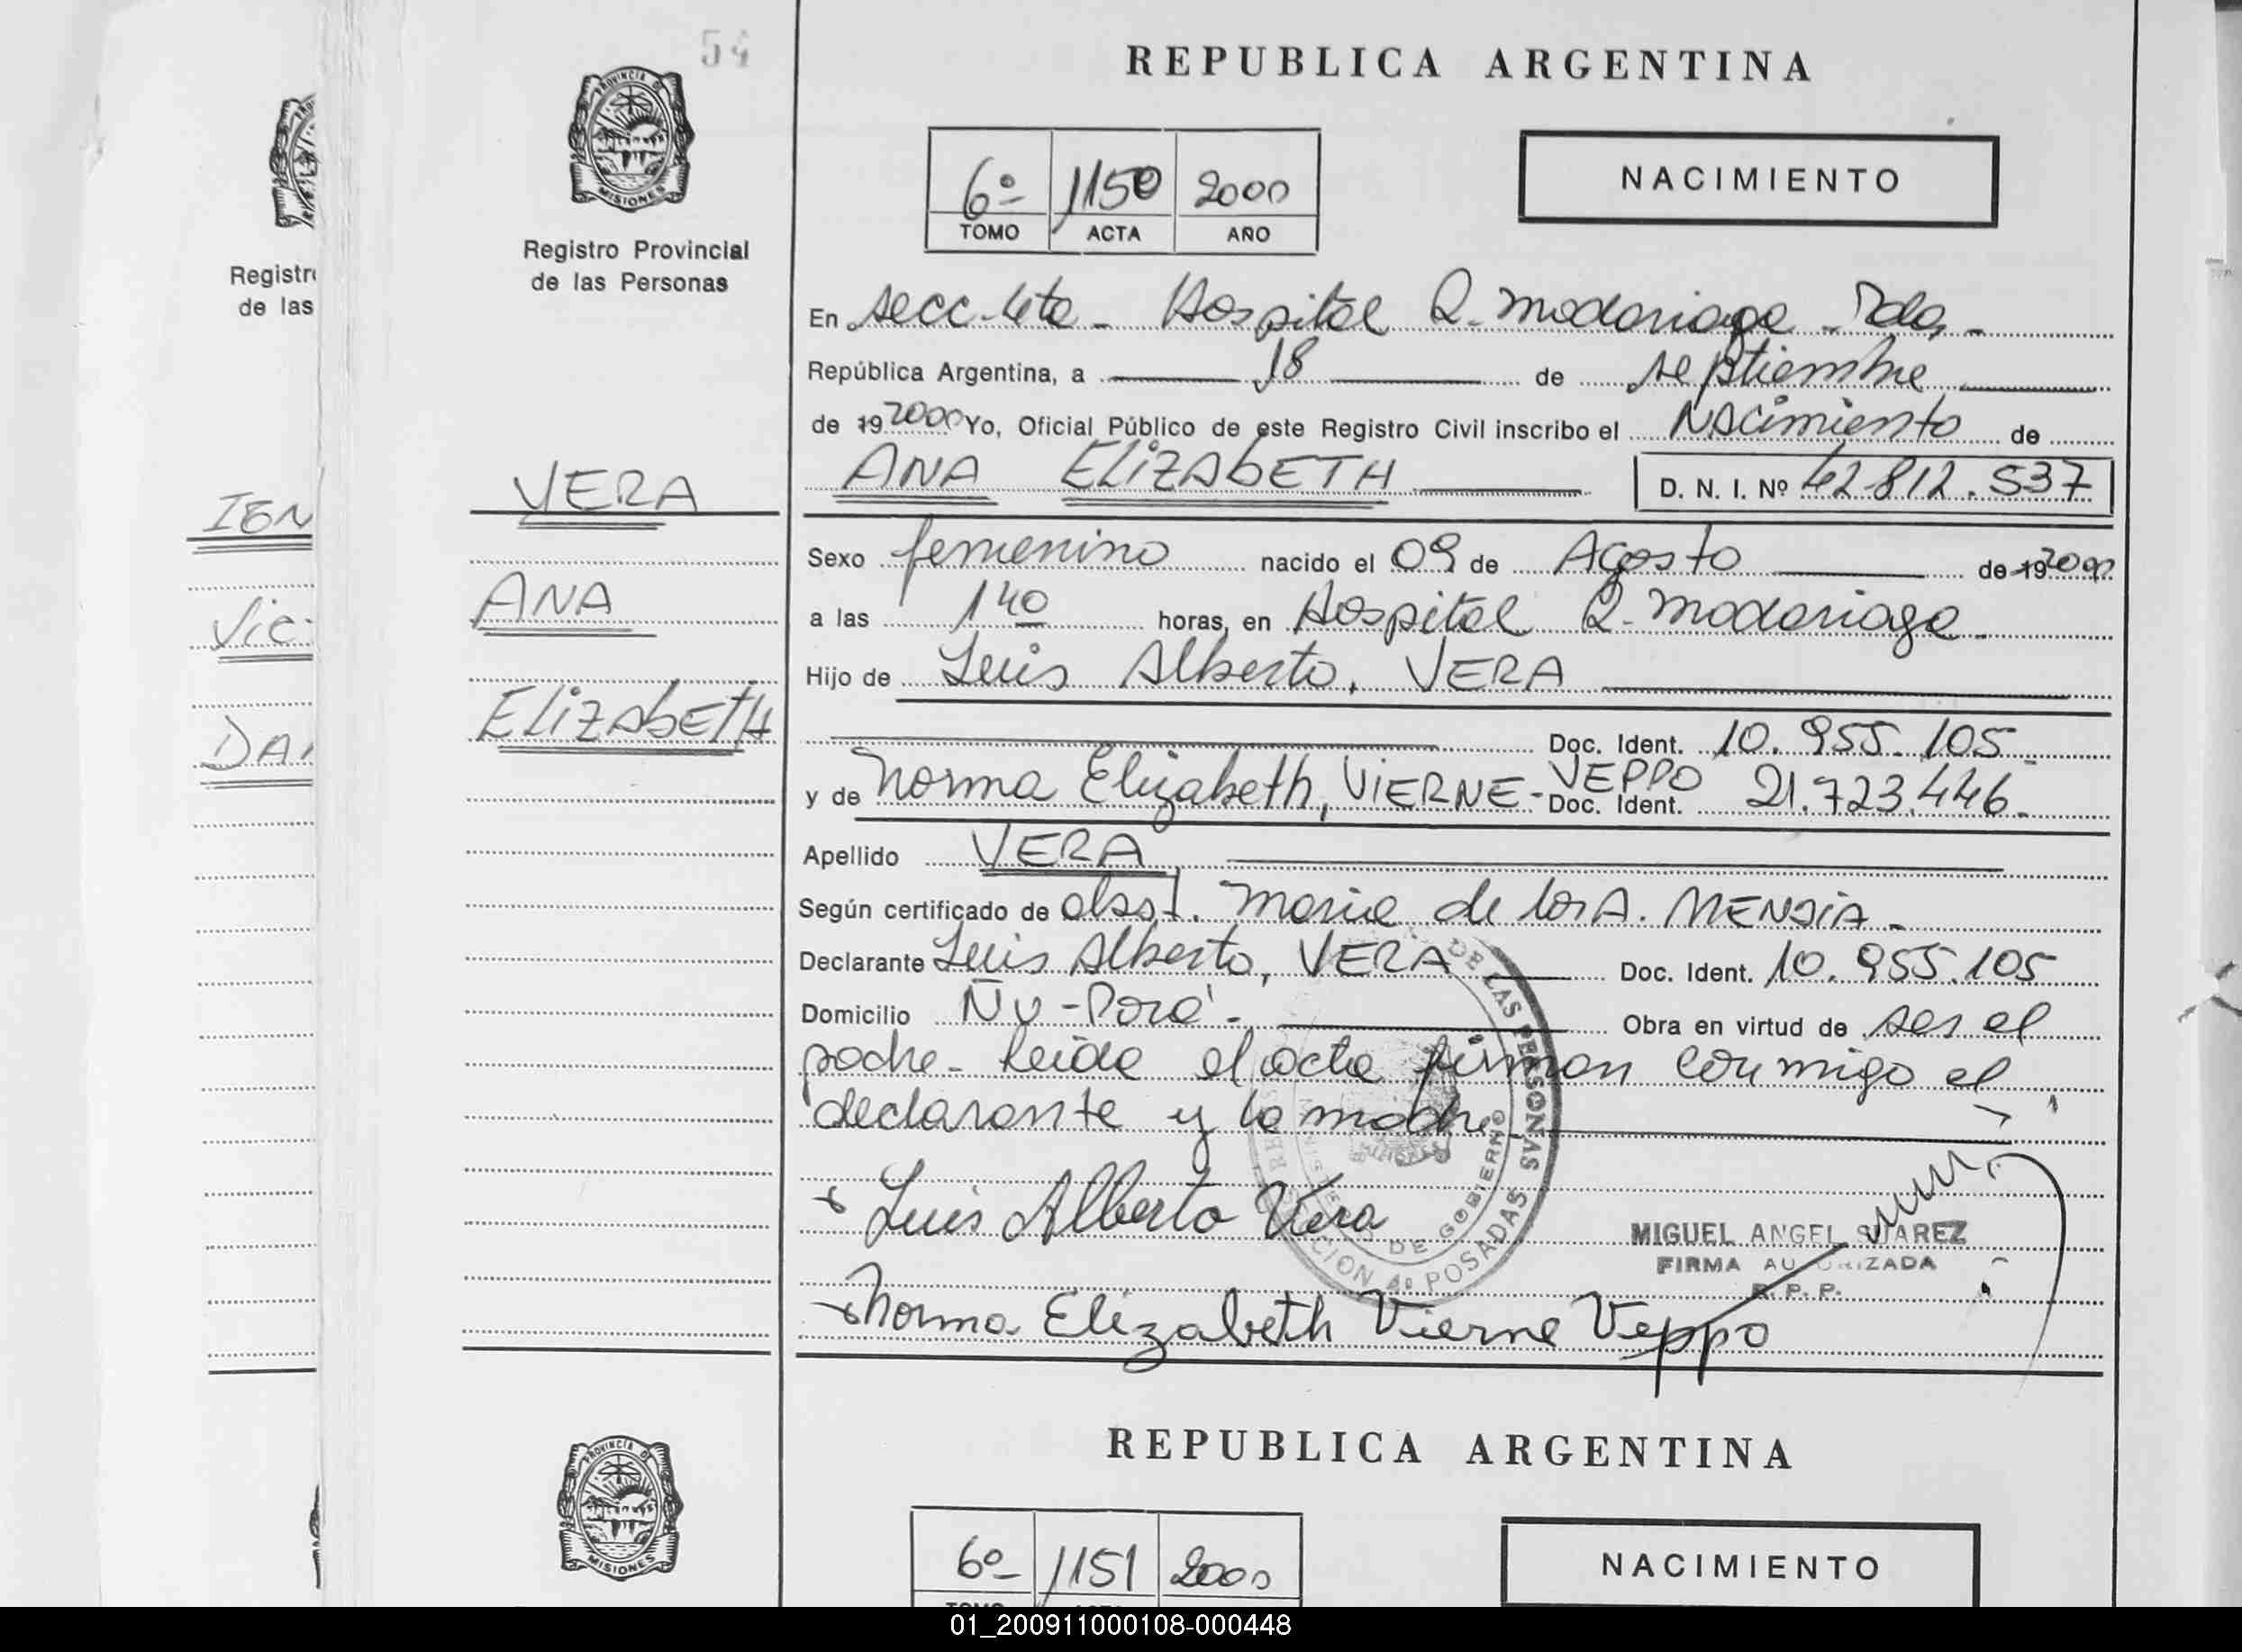 54
REPUBLICA ARGENTINA
PROVINCIA D
MISIONES
6º 1150 2000
TOMO ACTA AÑO
NACIMIENTO
Registro Provincial
de las Personas
Registr
de las
En secc. 4ta - Hospital R. Madariaga - Pdas -
República Argentina, a 18 de septiembre
de 19 2000 Yo, Oficial Público de este Registro Civil inscribo el Nacimiento de
VERA
ANA ELIZABETH D. N. I. Nº 42.812.537
IGN
Sexo femenino nacido el 09 de Agosto de 19 2000
ANA
a las 1 40 horas, en Hospital R. Madariaga -
Vic
Hijo de Luis Alberto, VERA
ELIZABETH
DA
Doc. Ident. 10.955.105
y de Norma Elizabeth, VIERNE - VEPPO Doc. Ident. 21.723.446 -
Apellido VERA
Según certificado de obst. Maria de los A. MENDIA -
Declarante Luis Alberto, VERA Doc. Ident. 10.955.105
Domicilio Ñu-Porá - Obra en virtud de ser el
padre - leida el acta firman conmigo el
declarante y la madre
DE LAS PERSONAS
DE GOBIERNO
POSADAS
Luis Alberto Vera
MIGUEL ANGEL SUAREZ
FIRMA AUTORIZADA
R. P. P.
Norma Elizabeth Vierne Veppo
REPUBLICA ARGENTINA
PROVINCIA D
MISIONES
6º 1151 2000
NACIMIENTO
01_200911000108-000448